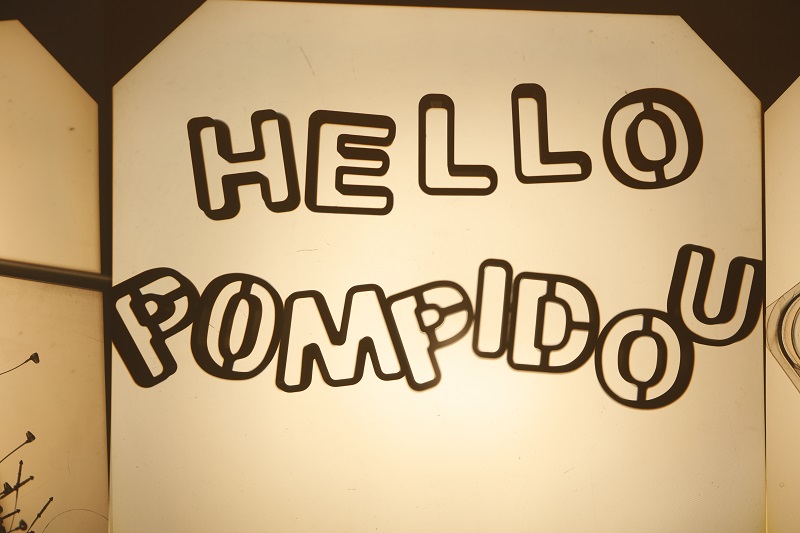 HELLO
POMPIDOU